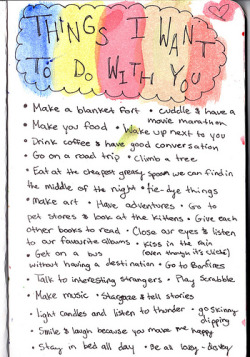 THINGS I WANT
TO DO WITH YOU
• Make a blanket fort • cuddle & have a
movie marathon
• Make you food • Wake up next to you
• Drink coffee & have good conversation
• Go on a road trip • Climb a tree
• Eat at the cheapest greasy spoon we can find
in the middle of the night • tie-dye things
• Make art • Have adventures • Go to
pet stores & look at the kittens • Give each
other books to read • Close our eyes & listen
to our favourite albums • Kiss in the rain
• Get on a bus (even though it's cliché)
without having a destination • Go to Bonfires
• Talk to interesting strangers • Play Scrabble
• Make music • Stargaze & tell stories
• light candles and listen to thunder • go skinny
dipping
• Smile & laugh because you make me happy
• Stay in bed all day • Be as lovey-dovey